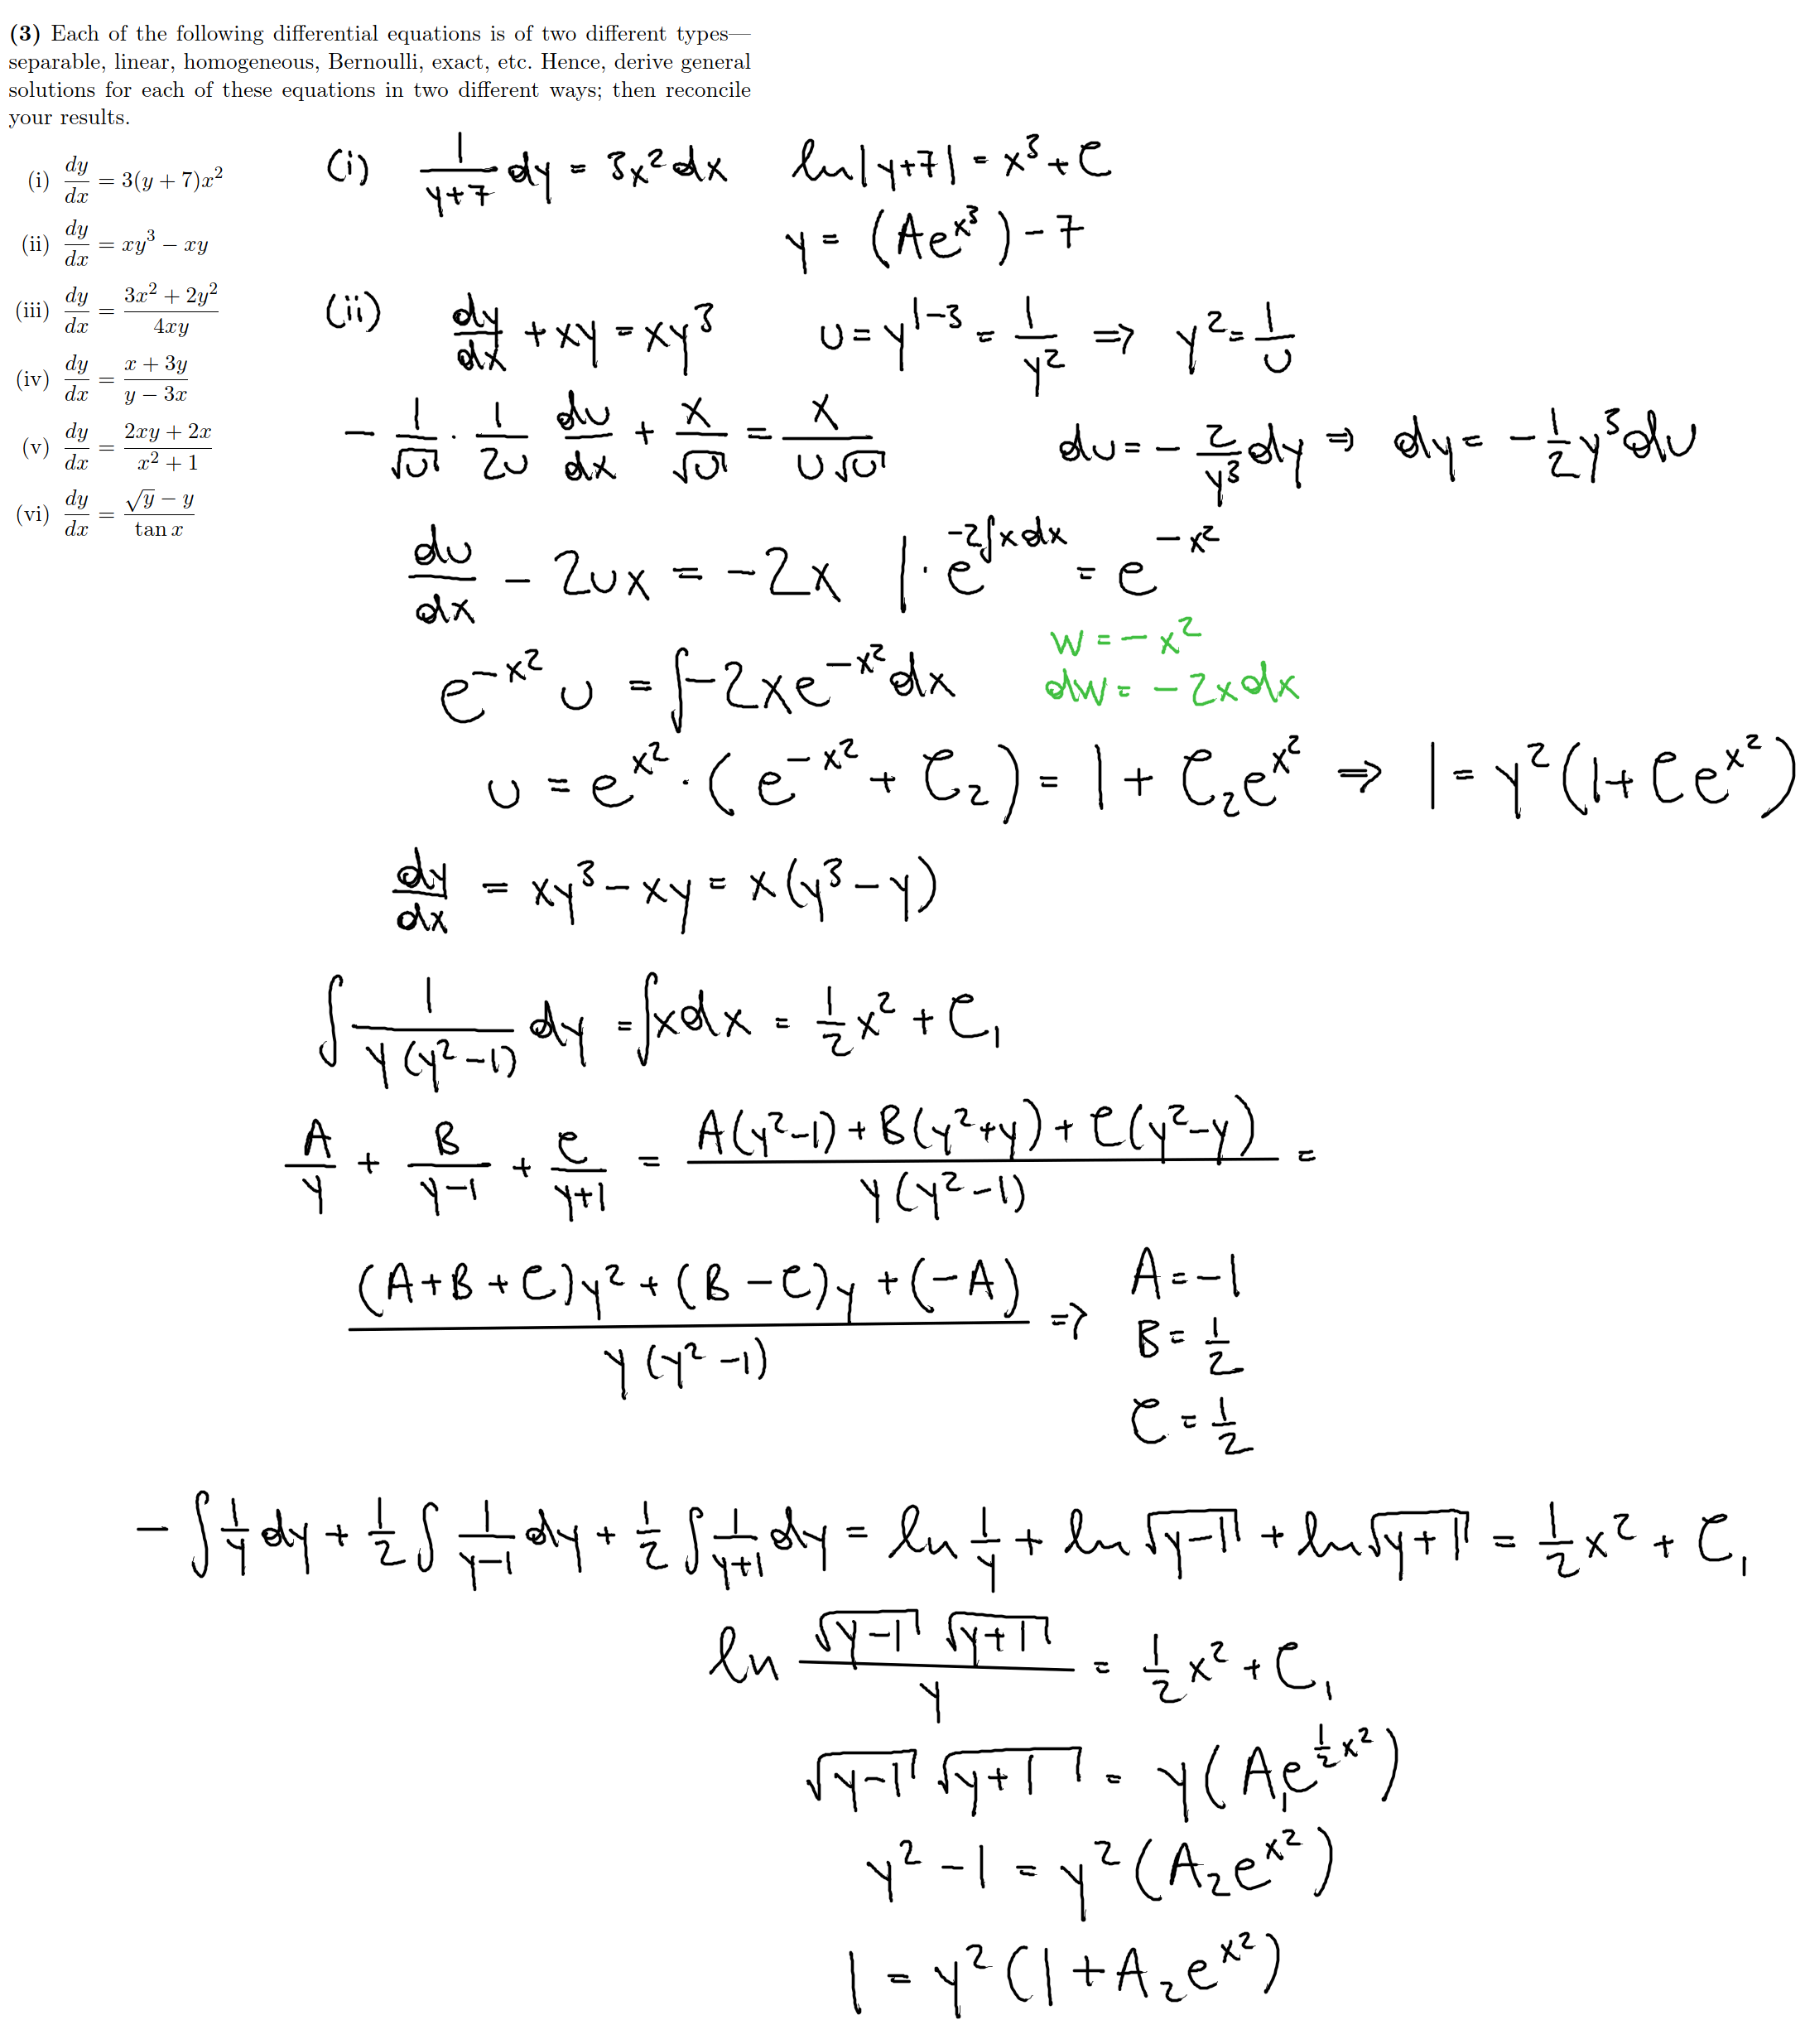 (3) Each of the following differential equations is of two different types—
separable, linear, homogeneous, Bernoulli, exact, etc. Hence, derive general
solutions for each of these equations in two different ways; then reconcile
your results.
(i) dy/dx = 3(y + 7)x²
(ii) dy/dx = xy³ − xy
(iii) dy/dx = (3x² + 2y²)/(4xy)
(iv) dy/dx = (x + 3y)/(y − 3x)
(v) dy/dx = (2xy + 2x)/(x² + 1)
(vi) dy/dx = (√y − y)/(tan x)
(i) 1/(y+7) dy = 3x² dx ln|y+7| = x³ + C
y = (Ae^(x³)) − 7
(ii) dy/dx + xy = xy³ u = y^(1−3) = 1/y² ⇒ y² = 1/u
− 1/√u · 1/(2u) du/dx + x/√u = x/(u√u) du = − 2/y³ dy ⇒ dy = − 1/2 y³ du
du/dx − 2ux = −2x | · e^(−2∫x dx) = e^(−x²)
w = −x²
e^(−x²) u = ∫−2xe^(−x²) dx dw = −2x dx
u = e^(x²) · (e^(−x²) + C₂) = 1 + C₂e^(x²) ⇒ 1 = y²(1 + Ce^(x²))
dy/dx = xy³ − xy = x(y³ − y)
∫ 1/(y(y²−1)) dy = ∫x dx = 1/2 x² + C₁
A/y + B/(y−1) + C/(y+1) = (A(y²−1) + B(y²+y) + C(y²−y))/(y(y²−1)) =
((A+B+C)y² + (B−C)y + (−A))/(y(y²−1)) ⇒ A = −1
B = 1/2
C = 1/2
− ∫ 1/y dy + 1/2 ∫ 1/(y−1) dy + 1/2 ∫ 1/(y+1) dy = ln 1/y + ln √(y−1) + ln √(y+1) = 1/2 x² + C₁
ln (√(y−1) √(y+1))/y = 1/2 x² + C₁
√(y−1) √(y+1) = y(A₁e^(1/2 x²))
y² − 1 = y²(A₂e^(x²))
1 = y²(1 + A₂e^(x²))